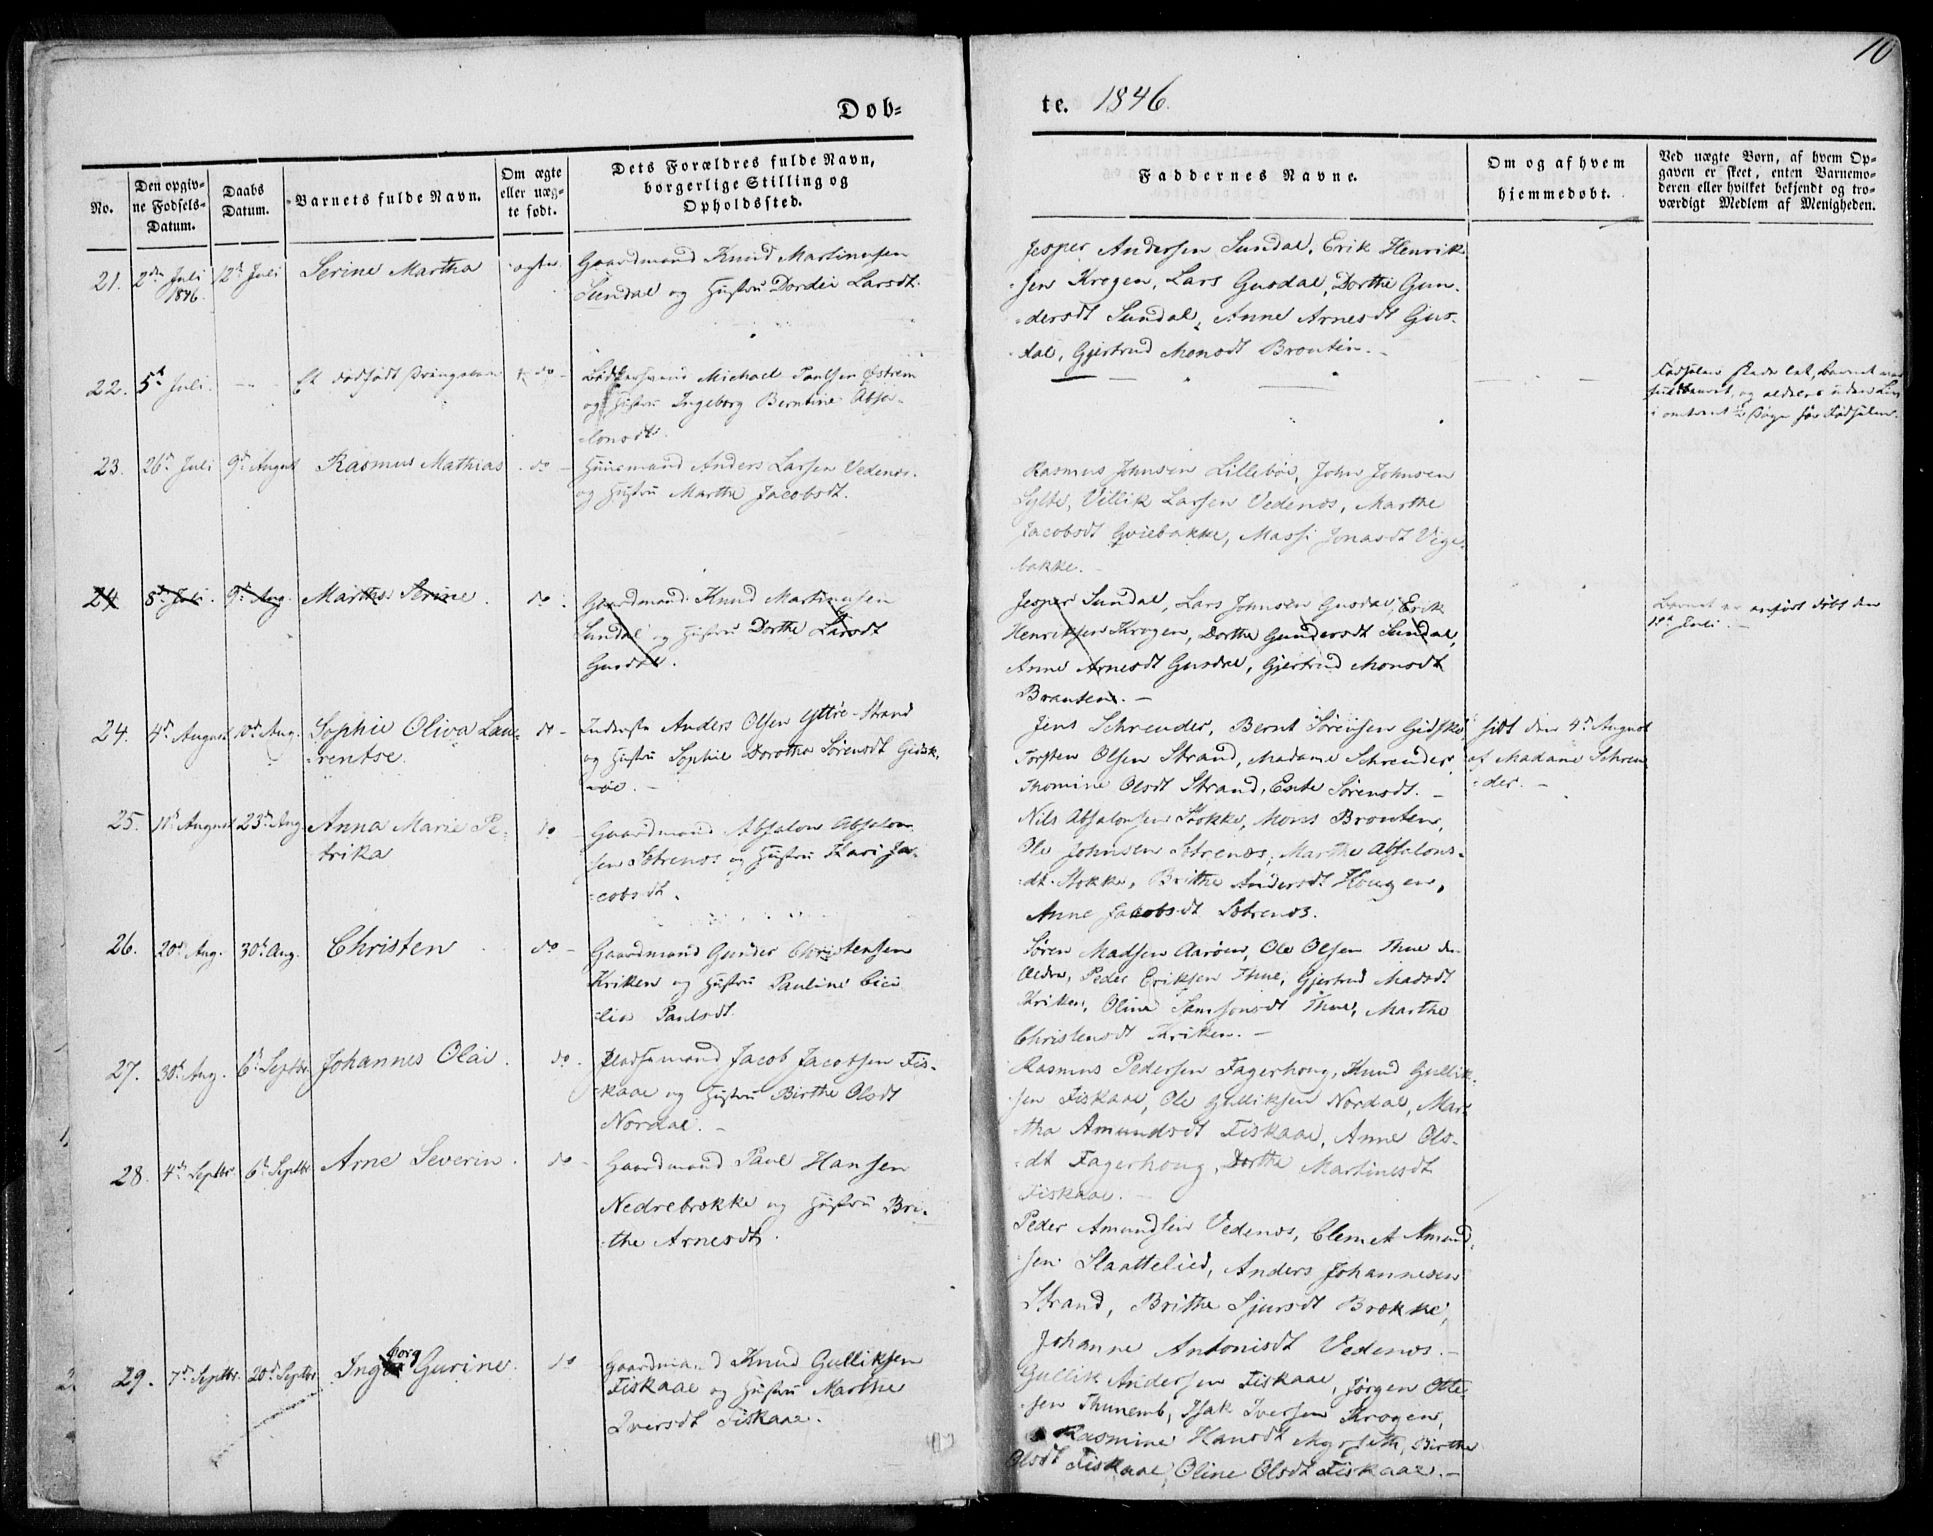 10
Døb-
te. 1846.
No.
Den opgiv-
ne Fødsels-
Datum.
Daabs
Datum.
Barnets fulde Navn.
Om ægte
eller uæg-
te født.
Dets Forældres fulde Navn,
borgerlige Stilling og
Opholdssted.
Faddernes Navne.
Om og af hvem
hjemmedøbt.
Ved uægte Børn, af hvem Op-
gaven er skeet, enten Barnemo-
deren eller hvilket bekjendt og tro-
værdigt Medlem af Menigheden.
21. 2den Juli 12te Juli Serine Martha ægte
1846.
Gaardmand Knud Martinusen
Sundal og Hustru Dordei Larsdt.
Jesper Andersen Sundal, Erik Henrik
sen Krogen, Lars Gusdal, Dorthe Gun-
dersdt Sundal, Anne Arnesdt Gus-
dal, Gjertrud Monsdt Brouten.
22. 5te Juli. Et dødfødt Drengebarn do
Michael Paulsen Østrem
og Hustru Ingeborg Berntine Absa-
lonsdt.
23. 26de Juli 9de August Rasmus Mathias do
Huusmand Anders Larsen Vedenes
og Hustru Marthe Jacobsdt.
Rasmus Johnsen Lillebøe, John Johnsen
Sylte, Villik Larsen Vedenes, Marthe
Jacobsdt Gviebakke, Massi Jonasdt Vige-
bakke.
24 8de Juli. 9de Aug. Martha Serine. do.
Gaardmand Knud Martinusen
Sundal og Hustru Dorthe Larsdt
Gusdal.
Jesper Sundal, Lars Johnsen Gusdal, Erik
Henriksen Krogen, Dorthe Gundersdt Sundal,
Anne Arnesdt Gusdal, Gjertrud Monsdt
Brauten.
Barnet er anført døbt den
12te Juli.
24. 4de August 10de Aug. Sophie Oliva Lau-
rentse. do
Inderste Anders Olsen Yttre-Strand
og Hustru Sophie Dorothea Sørensdt Gidsk-
øe.
Jens Schreuder, Bernt Sørensen Gidskø,
Torsten Olsen Strand, Madame Schreuder,
Thomine Olsdt Strand, Sørensdt.
den 4de August
af Madame Schreu-
der.
25. 11te August 23de Aug. Anna Marie Pe-
trika do
Gaardmand Absalon Absalon-
sen Sætrenes og Hustru Kari Ja-
cobsdt.
Nils Absalonsen Stokke, Mons Brouten,
Ole Johnsen Sætrenes, Marthe Absalons-
dt Stokke, Brithe Andersdt Hougen,
Anne Jacobsdt Sætrenes.
26. 20de Aug. 30te Aug. Christen do
Gaardmand Gunder Christensen
Kriken og Hustru Pauline Ceci-
lia Paulsdt.
Søren Madsen Aarøen, Ole Olsen Thue den
Ældre, Peder Eriksen Thue, Gjertrud Madsdt
Kriken, Oline Samsonsdt Thue, Marthe
Christensdt Kriken.
27. 30te Aug. 6te Septbr. Johannes Olai. do.
Pladsemand Jacob Jacobsen Fis-
kaae og Hustru Birthe Olsdt
Nordal.
Rasmus Pedersen Fagerhoug, Knud Gullik-
sen Fiskaae, Ole Gulliksen Nordal, Mar-
tha Amundsdt Fiskaae, Anne Ols-
dt Fagerhoug, Dorthe Martinesdt
Fiskaae.
28. 4de Septbr. 6te Septbr. Arne Severin. do
Gaardmand Paul Hansen
Nedrebrokke og Hustru Bri-
the Arnesdt.
Peder Amundsen Vedenes, Clemet Amund-
sen Slaattelied, Anders Johannesen
Strand, Brithe Sjursdt Brokke,
Johanne Antonisdt Vedenes.
29. 7de Septbr. 20de Septbr. Ingeborg Gurine. do
Gaardmand Knud Gulliksen
Fiskaae og Hustru Marthe
Iversdt Fiskaae.
Gullik Andersen Fiskaae, Jørgen Otte-
sen Thunemb, Isak Iversen Krogen,
Rasmine Hansdt Myrseth, Birthe
Olsdt Fiskaae, Oline Olsdt Fiskaae.